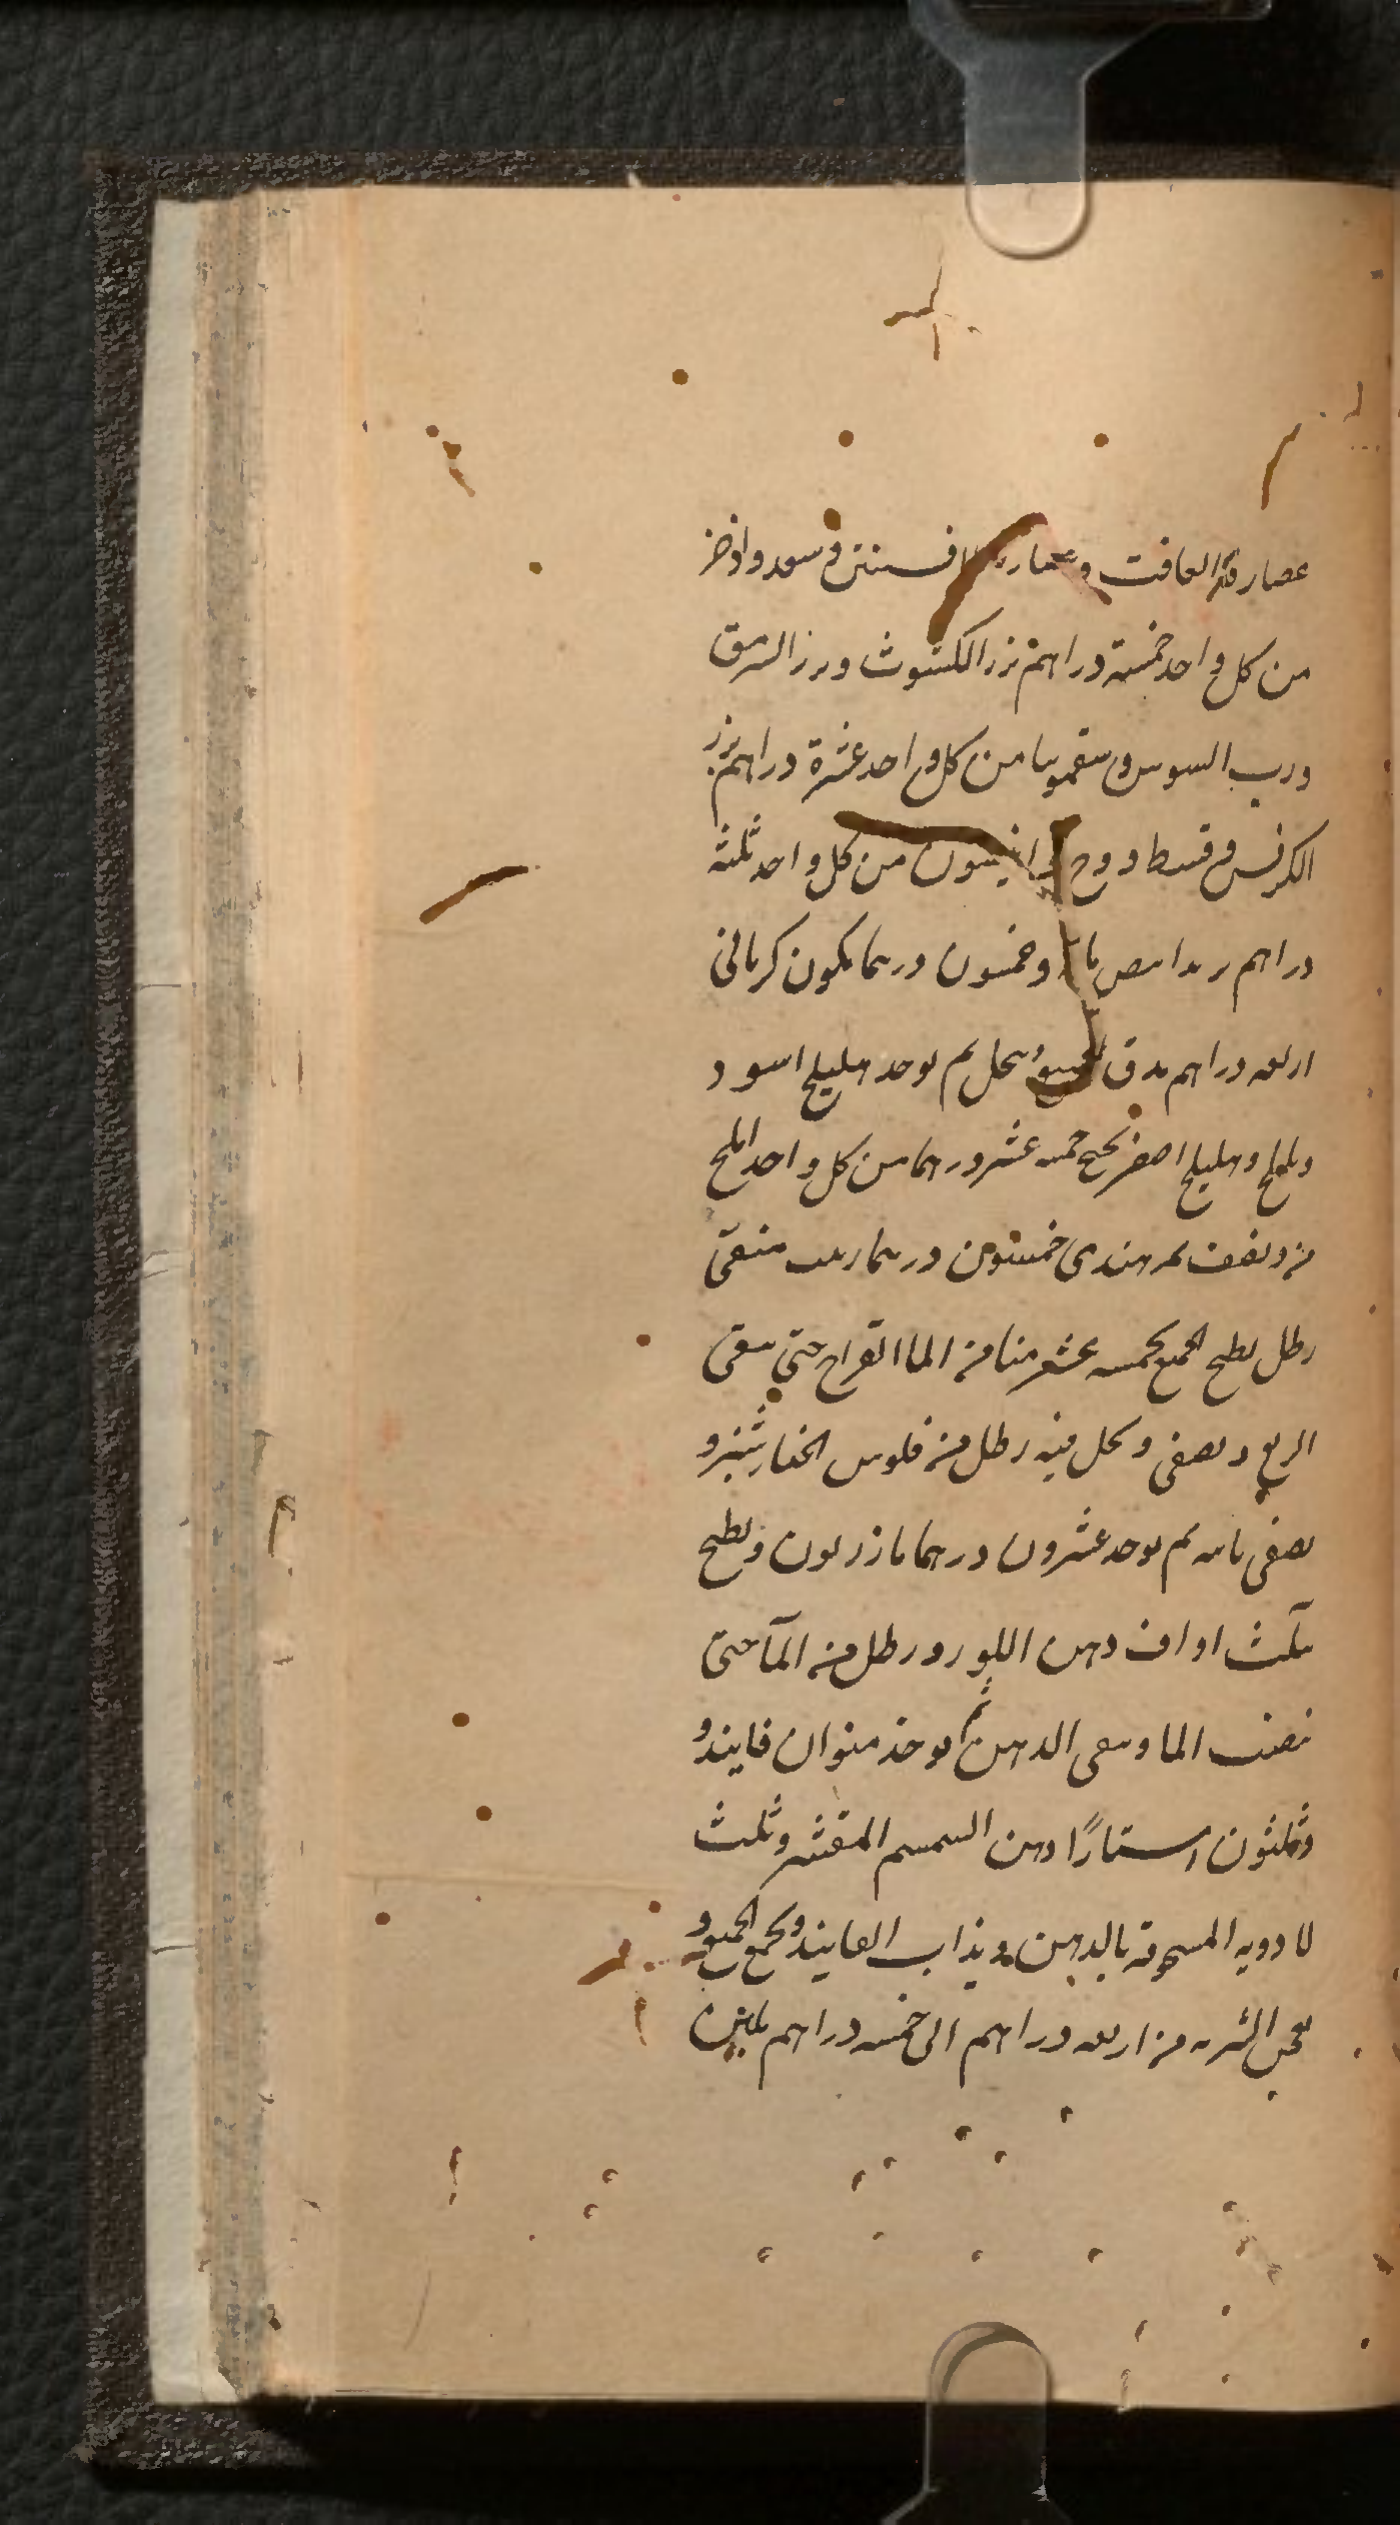 عصارة الغافت وعصارة الافسنتين وسعد واذخر
من كل واحد خمسة دراهم بزر الكشوث وبزر السرمق
ورب السوس وسقمونيا من كل واحد عشرة دراهم بزر
الكرفس وقسط ووج وانيسون من كل واحد ثلثة
دراهم تربد ابيض مائة وخمسون درهما كمون كرمانى
اربعة دراهم يدق وينخل ثم يوخذ هليلج اسود
وبليلج وهليلج اصفر خمسة عشر درهما من كل واحد املج
من ونصف تمر هندى خمسون درهما زبيب منقى
رطل يطبخ الجميع بخمسة عشر منا من الما القراح حتى يبقى
الربع ويصفى ويحل فيه رطل من فلوس الخيارشنبر و
يصفى ثانيه ثم يوخذ عشرون درهما مازريون ويطبخ
بثلث اواق دهن اللوز ورطل من المآ حتى
نصف الما ويبقى الدهن ثم يوخذ منوان فانيذ و
وثلثون استارًا دهن السمسم المقشر وثلث
لا دويه المسحوقة بالدهن ويذاب الفانيذ ويجمع الجميع و
يعجن الشربه من اربعه دراهم الى خمسه دراهم